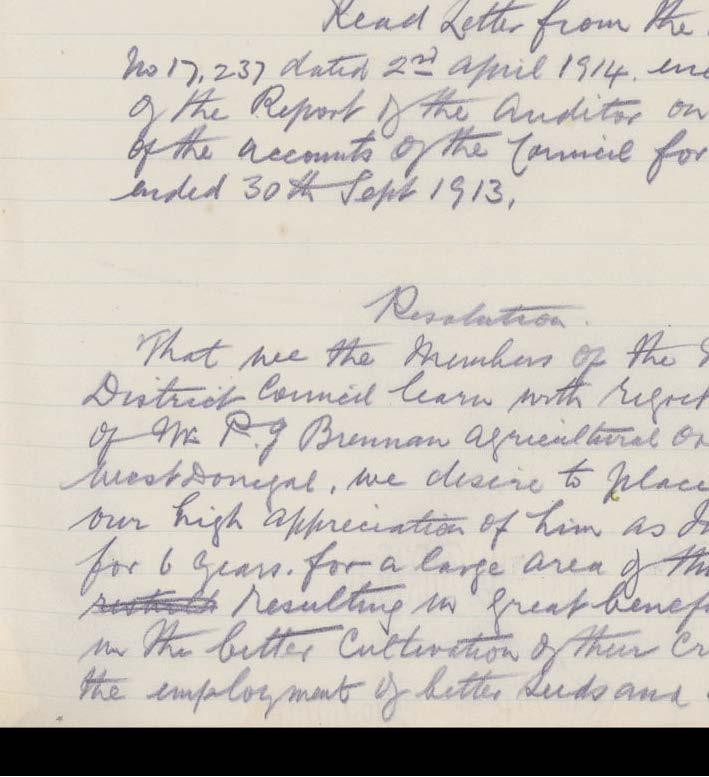 Read Letter from the
No 17,237 dated 2nd April 1914. enc
of the Report of the Auditor on
of the accounts of the Council for
ended 30th Sept 1913.
Resolution.
That we the Members of the
District Council learn with regret
of Mr P.J Brennan Agricultural
West Donegal, we desire to place
our high appreciation of him as
for 6 years. for a large area of
resulting in great benef
in the better Cultivation of their Cr
the employment of better seeds and